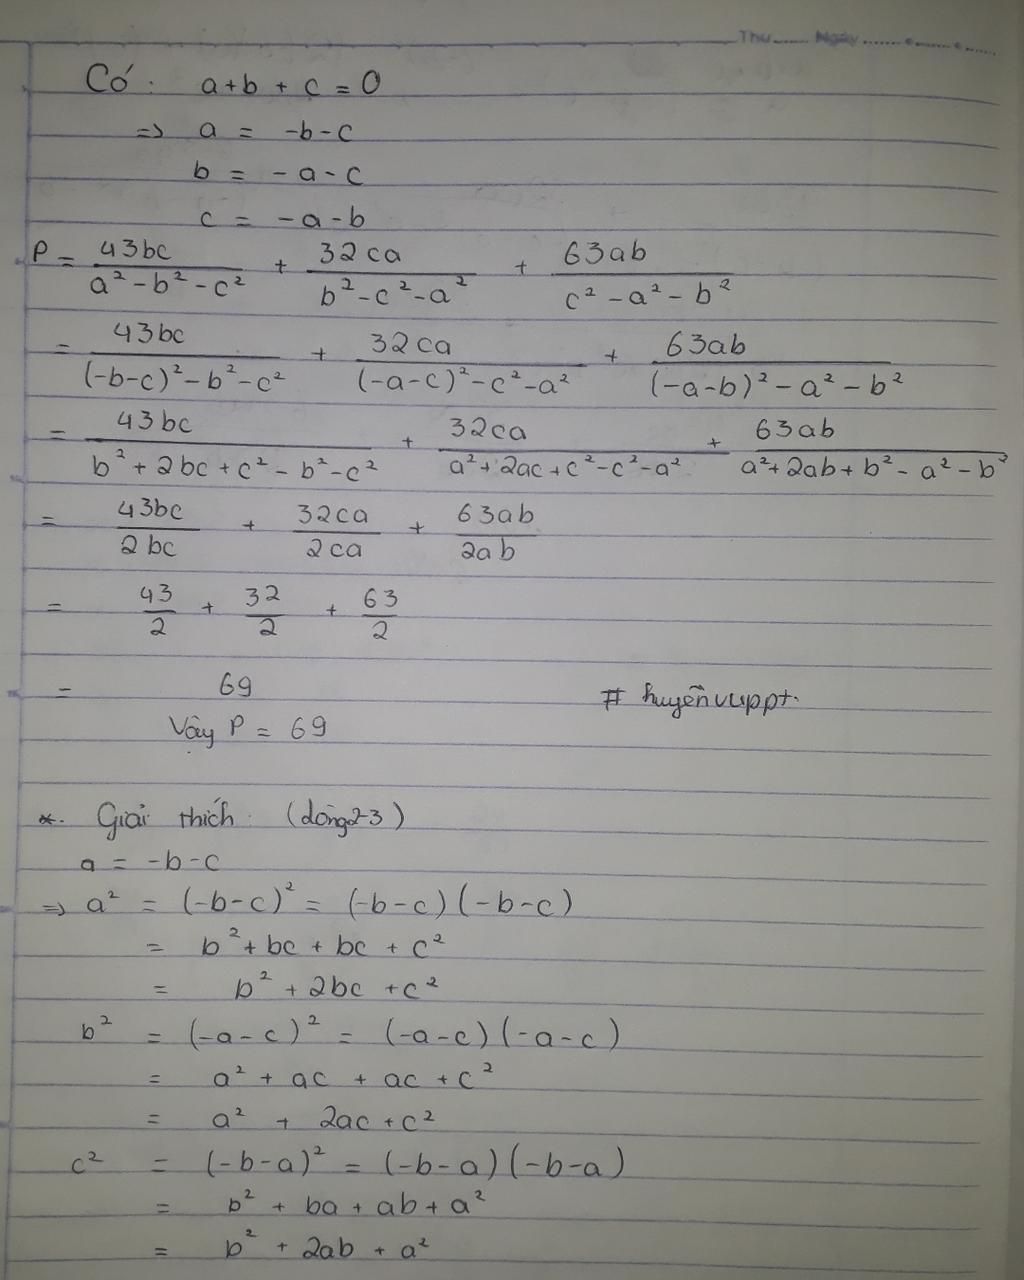 Thứ...... Ngày ...............
Có: a+b+c=0
=> a = -b-c
b = -a-c
c = -a-b
P = 43bc/(a²-b²-c²) + 32ca/(b²-c²-a²) + 63ab/(c²-a²-b²)
= 43bc/((-b-c)²-b²-c²) + 32ca/((-a-c)²-c²-a²) + 63ab/((-a-b)²-a²-b²)
= 43bc/(b²+2bc+c²-b²-c²) + 32ca/(a²+2ac+c²-c²-a²) + 63ab/(a²+2ab+b²-a²-b²)
= 43bc/2bc + 32ca/2ca + 63ab/2ab
= 43/2 + 32/2 + 63/2
= 69 # huyềnvuppt.
Vậy P = 69
*. Giải thích: (dòng2-3)
a = -b-c
=> a² = (-b-c)² = (-b-c)(-b-c)
= b²+bc+bc+c²
= b²+2bc+c²
b² = (-a-c)² = (-a-c)(-a-c)
= a²+ac+ac+c²
= a²+2ac+c²
c² = (-b-a)² = (-b-a)(-b-a)
= b²+ba+ab+a²
= b²+2ab+a²